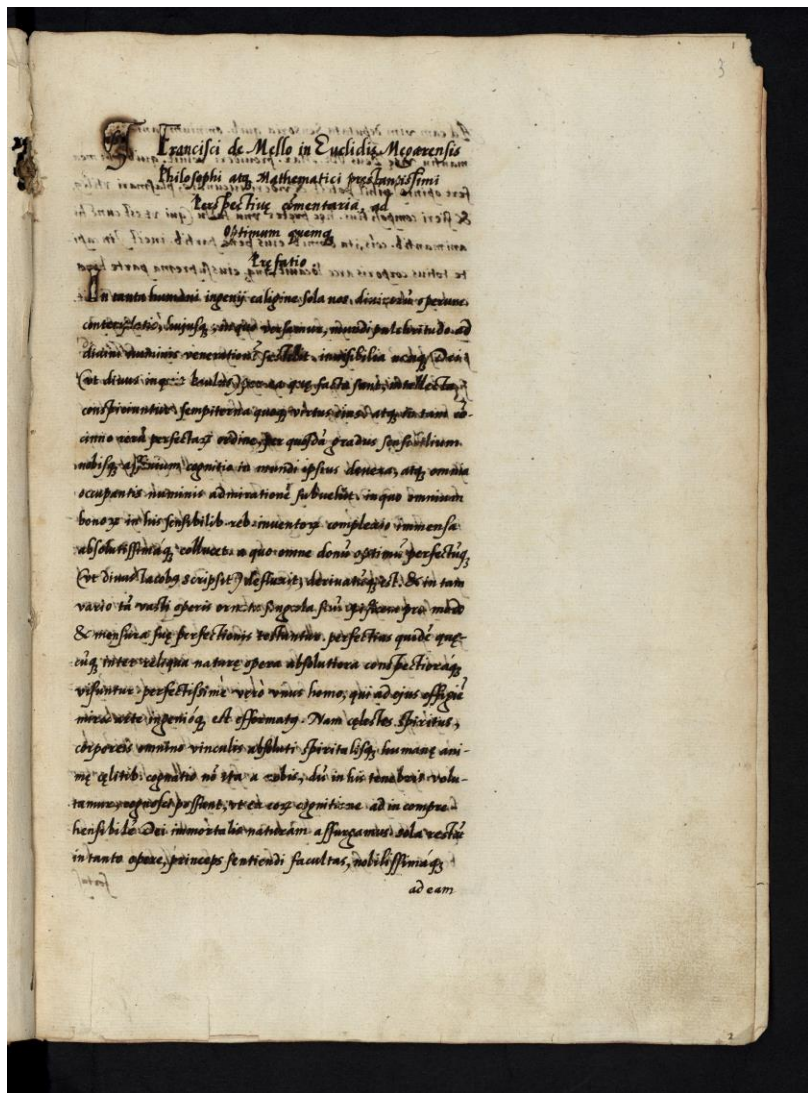 3
Francisci de Mello in Euclidis Megarensis
Philosophi atq, Mathematici prestantissimi
Perspectiuę cōmentaria, ad
Optimum quemq,
Prefatio
In tanta humani ingenij caligine sola nos diuinorū operum
contēplatio, hujusq, in quo versamur, mundi pulchritudo ad
diuini numinis venerationē inuisibilia Dei
(vt diuus inquit Paulus) per ea quę facta sunt, intellecta,
conspiciuntur, sempiterna quoq, virtus ejus atq, tam
cinno rerū perfectarū ordine, per quosdā gradus sensibilium
nobisq, cognitio in mundi ipsius atq, omnia
occupantis numinis admirationē in quo omnium
bonorū in his sensibilib. reb. inuentorū complexio immensa
absolutissimáq, collucet: a quo omne donū optimū perfectūq,
(vt diuus Iacobus scripsit) defluxit, deriuatūq, est. & in tam
vario tā vasti operis ornatu singula suū opificem pro modo
& mensura suę perfectionis testantur. perfectius quidē quę-
cūq, inter reliqua naturę opera absolutiora conspectioráq,
visuntur. perfectissimè verò vnus homo, qui ad ejus effigiē
miro arte ingenióq, est efformatus. Nam cęlestes spiritus,
corporeis omnino vinculis absoluti spiritalisq, humanę ani-
mę cęlitib. cognatio nō ita a nobis, dū in his tenebris volu-
tamur, cognosci possunt, vt ex eorū cognitione ad incompre-
hensibilē Dei immortalis naturam assurgamus. sola restat
in tanto opere, princeps sentiendi facultas, nobilissimáq,
ad eam
2